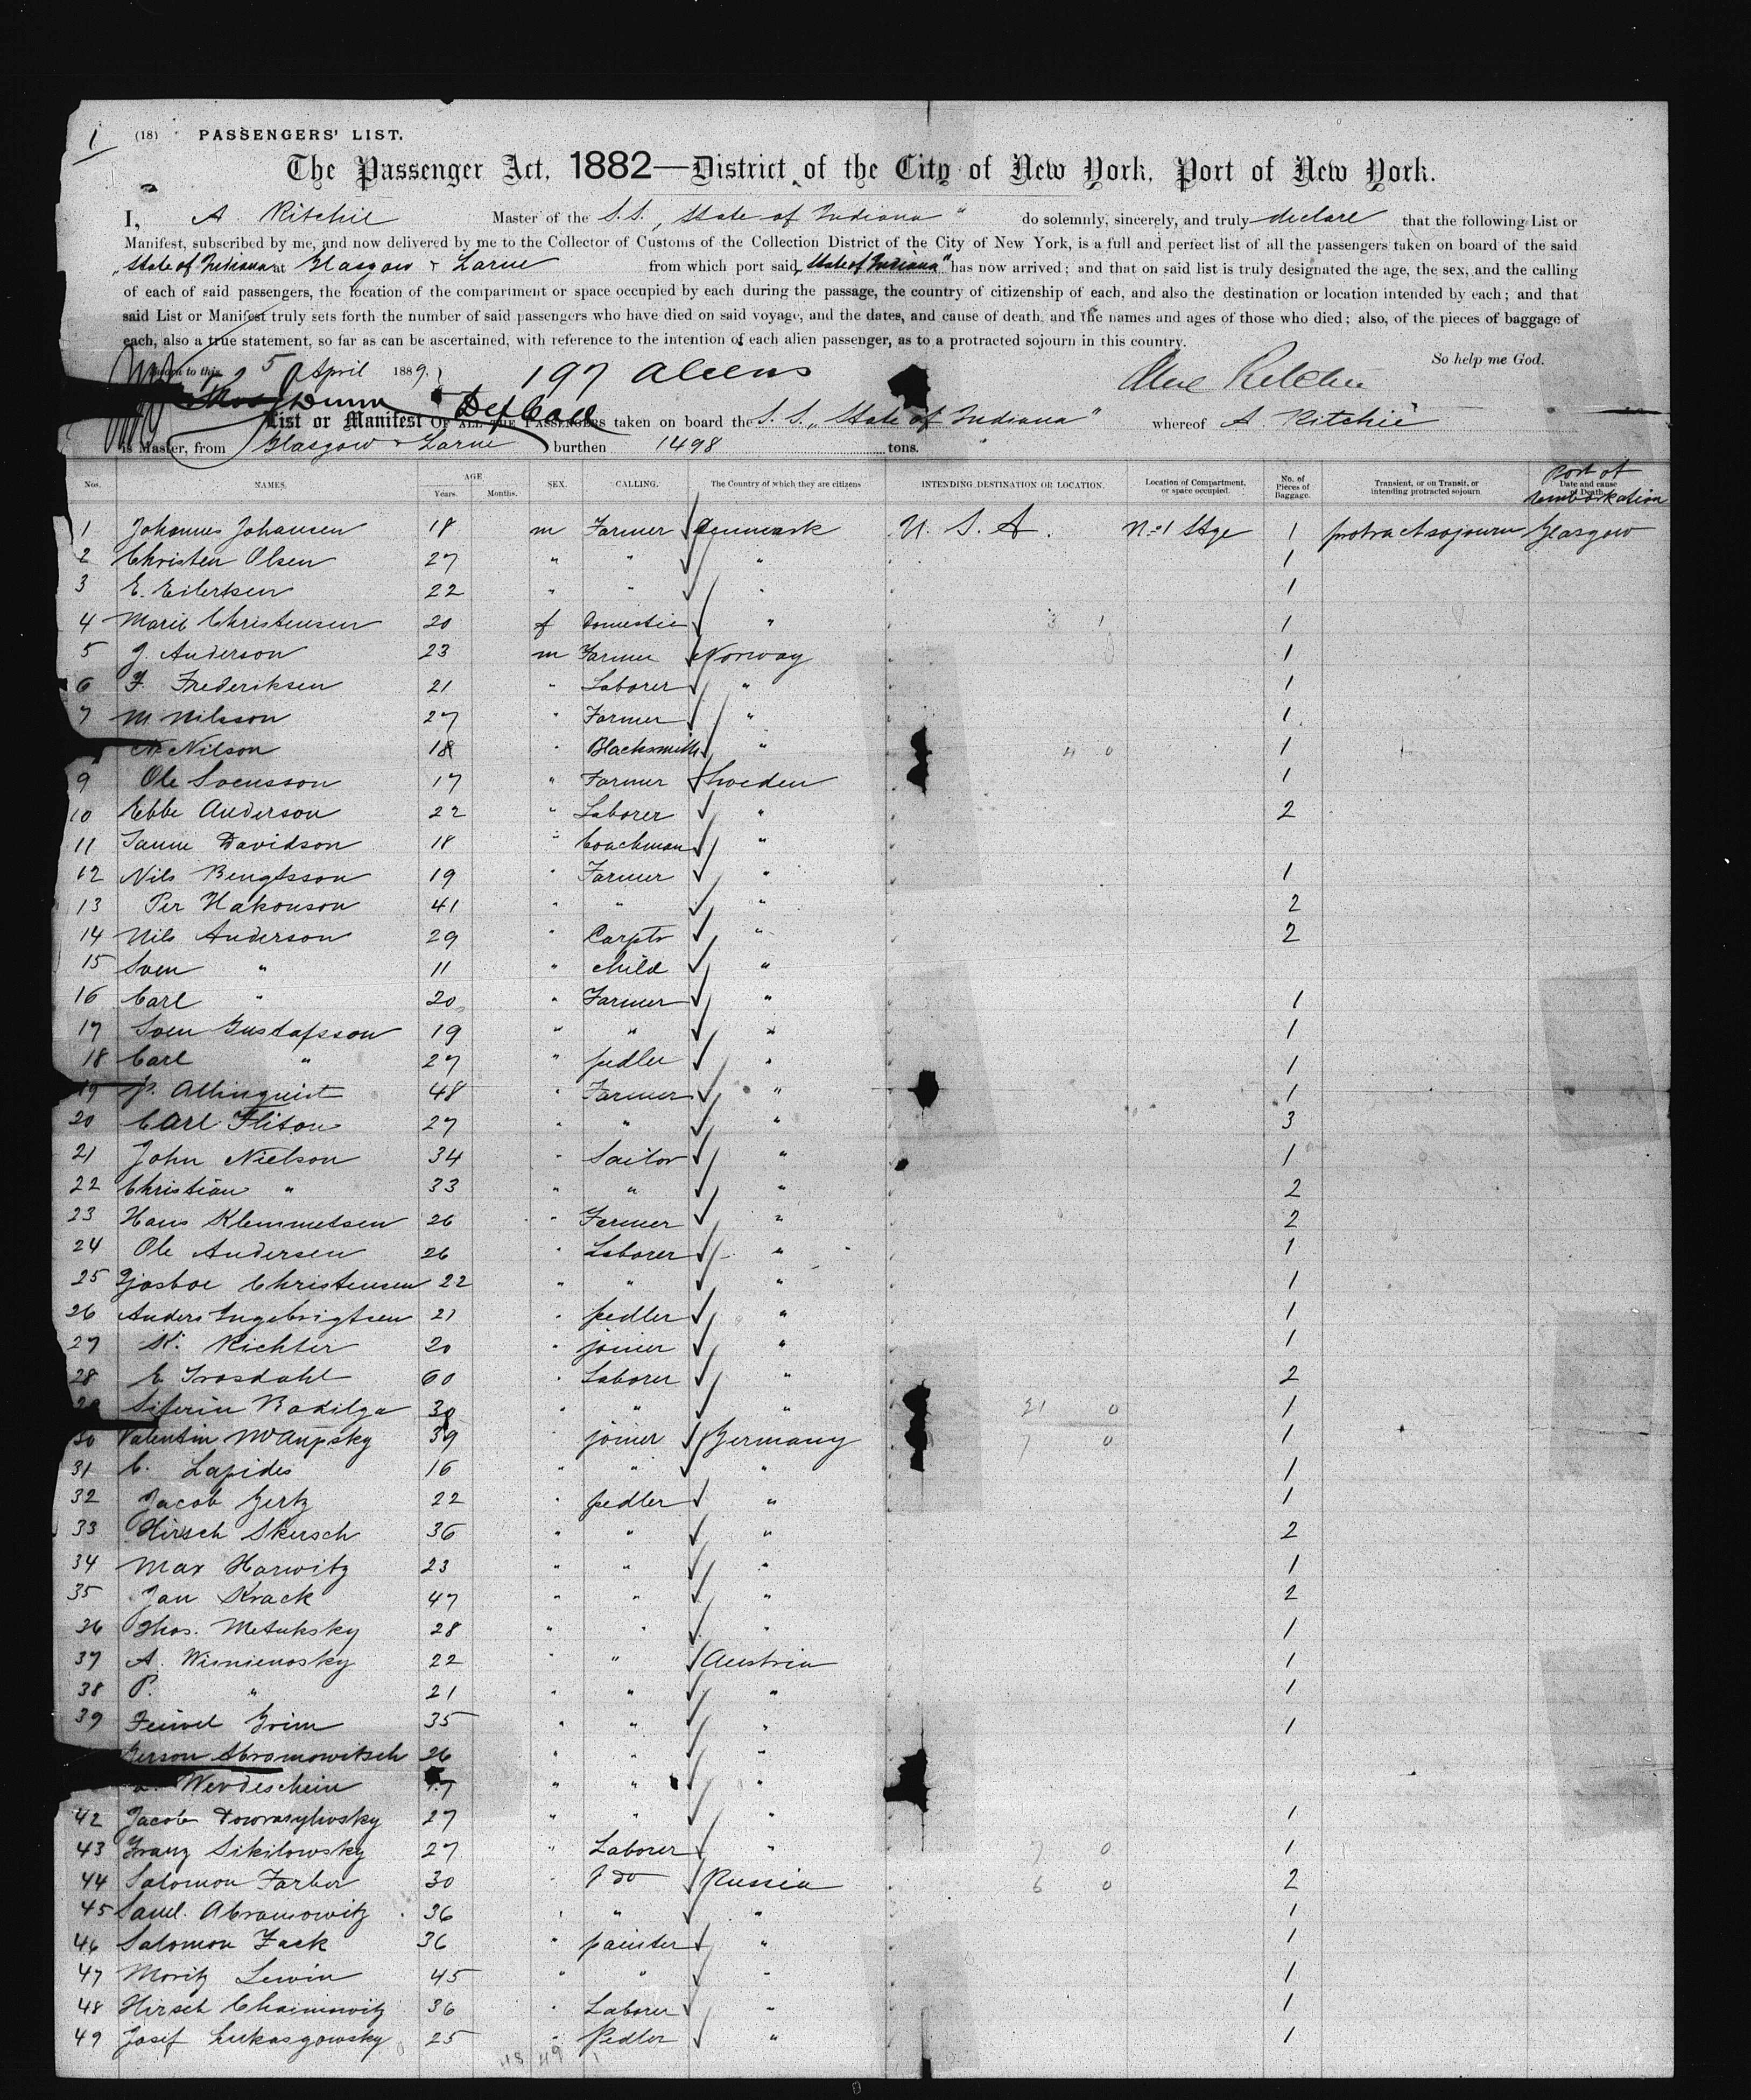 1
(18) PASSENGERS' LIST.
The Passenger Act, 1882—District of the City of New York, Port of New York.
I, A. Ritchie Master of the S.S. „State of Indiana" do solemnly, sincerely, and truly declare that the following List or
Manifest, subscribed by me, and now delivered by me to the Collector of Customs of the Collection District of the City of New York, is a full and perfect list of all the passengers taken on board of the said
„State of Indiana" at Glasgow & Larne from which port said „State of Indiana" has now arrived; and that on said list is truly designated the age, the sex, and the calling
of each of said passengers, the location of the compartment or space occupied by each during the passage, the country of citizenship of each, and also the destination or location intended by each; and that
said List or Manifest truly sets forth the number of said passengers who have died on said voyage, and the dates, and cause of death, and the names and ages of those who died; also, of the pieces of baggage of
each, also a true statement, so far as can be ascertained, with reference to the intention of each alien passenger, as to a protracted sojourn in this country.
So help me God.
Sworn to this 25 April 1889. 197 Aliens
Thos Dunn Dep Coll
List or Manifest OF ALL THE PASSENGERS taken on board the S.S. „State of Indiana" whereof A. Ritchie
is Master, from Glasgow & Larne burthen 1498 tons.
Nos. NAMES. AGE Years. Months. SEX. CALLING. The Country of which they are citizens INTENDING DESTINATION OR LOCATION. Location of Compartment, or space occupied. No. of Pieces of Baggage. Transient, or on Transit, or intending protracted sojourn. Date and cause of Death. Port of Embarkation
1 Johannes Johansen 18 m Farmer Denmark U. S. A. No 1 Stge 1 protract sojourn Glasgow
2 Christen Olsen 27 " " " 1
3 E. Eilertsen 22 " " " 1
4 Marie Christensen 20 f Domestic " 1
5 J. Anderson 23 m Farmer Norway 1
6 F. Frederiksen 21 " Laborer " 1
7 M. Nilsson 27 " Farmer " 1
N. Nilson 18 " Blacksmith " 1
9 Ole Svensson 17 " Farmer Sweden 1
10 Ebbe Anderson 22 " Laborer " 2
11 Davidson 18 " Coachman "
12 Nils Bengtsson 19 " Farmer " 1
13 Per Hakonson 41 " " " 2
14 Nils Anderson 29 " Carptr " 2
15 Sven " 11 " child "
16 Carl " 20 " Farmer " 1
17 Sven Gustafsson 19 " " " 1
18 Carl " 27 " pedler " 1
19 P. Allinquist 48 " Farmer " 1
20 Carl Flitson 27 " " " 3
21 John Nielson 34 " Sailor " 1
22 Christian " 33 " " " 2
23 Hans Klemmetsen 26 " Farmer " 2
24 Ole Andersen 26 " Laborer " 1
25 Christensen 22 " " " 1
26 Anders Ingebrigtsen 21 " pedler " 1
27 K. Richter 20 " joiner " 1
28 E. Trosdahl 60 " Laborer " 2
29 Siferin Bakilga 30 " " " 1
30 Valentin 39 " joiner Germany 1
31 C. Lapides 16 " " " 1
32 Jacob Gertz 22 " pedler " 1
33 Hirsch Skersch 36 " " " 2
34 Max Harwitz 23 " " " 1
35 Jan Krack 47 " " " 2
36 Thos. Metuksky 28 " " " 1
37 A. Wisnienosky 22 " " Austria 1
38 P. " 21 " " " 1
39 Feiwel Grim 35 " " " 1
Gerson Abramowitsch 26 " " "
Werdeschein 17 " " "
42 Jacob 27 " " " 1
43 Franz Sikilowsky 27 " Laborer " 1
44 Salomon Farber 30 " do Russia 2
45 Saml. Abramowitz 36 " " " 1
46 Salomon Zack 36 " painter " 1
47 Moritz Lewin 45 " " " 1
48 Hirsch Chaimowitz 36 " Laborer " 1
49 Josif Lukasgowsky 25 " Pedler " 1
48 49